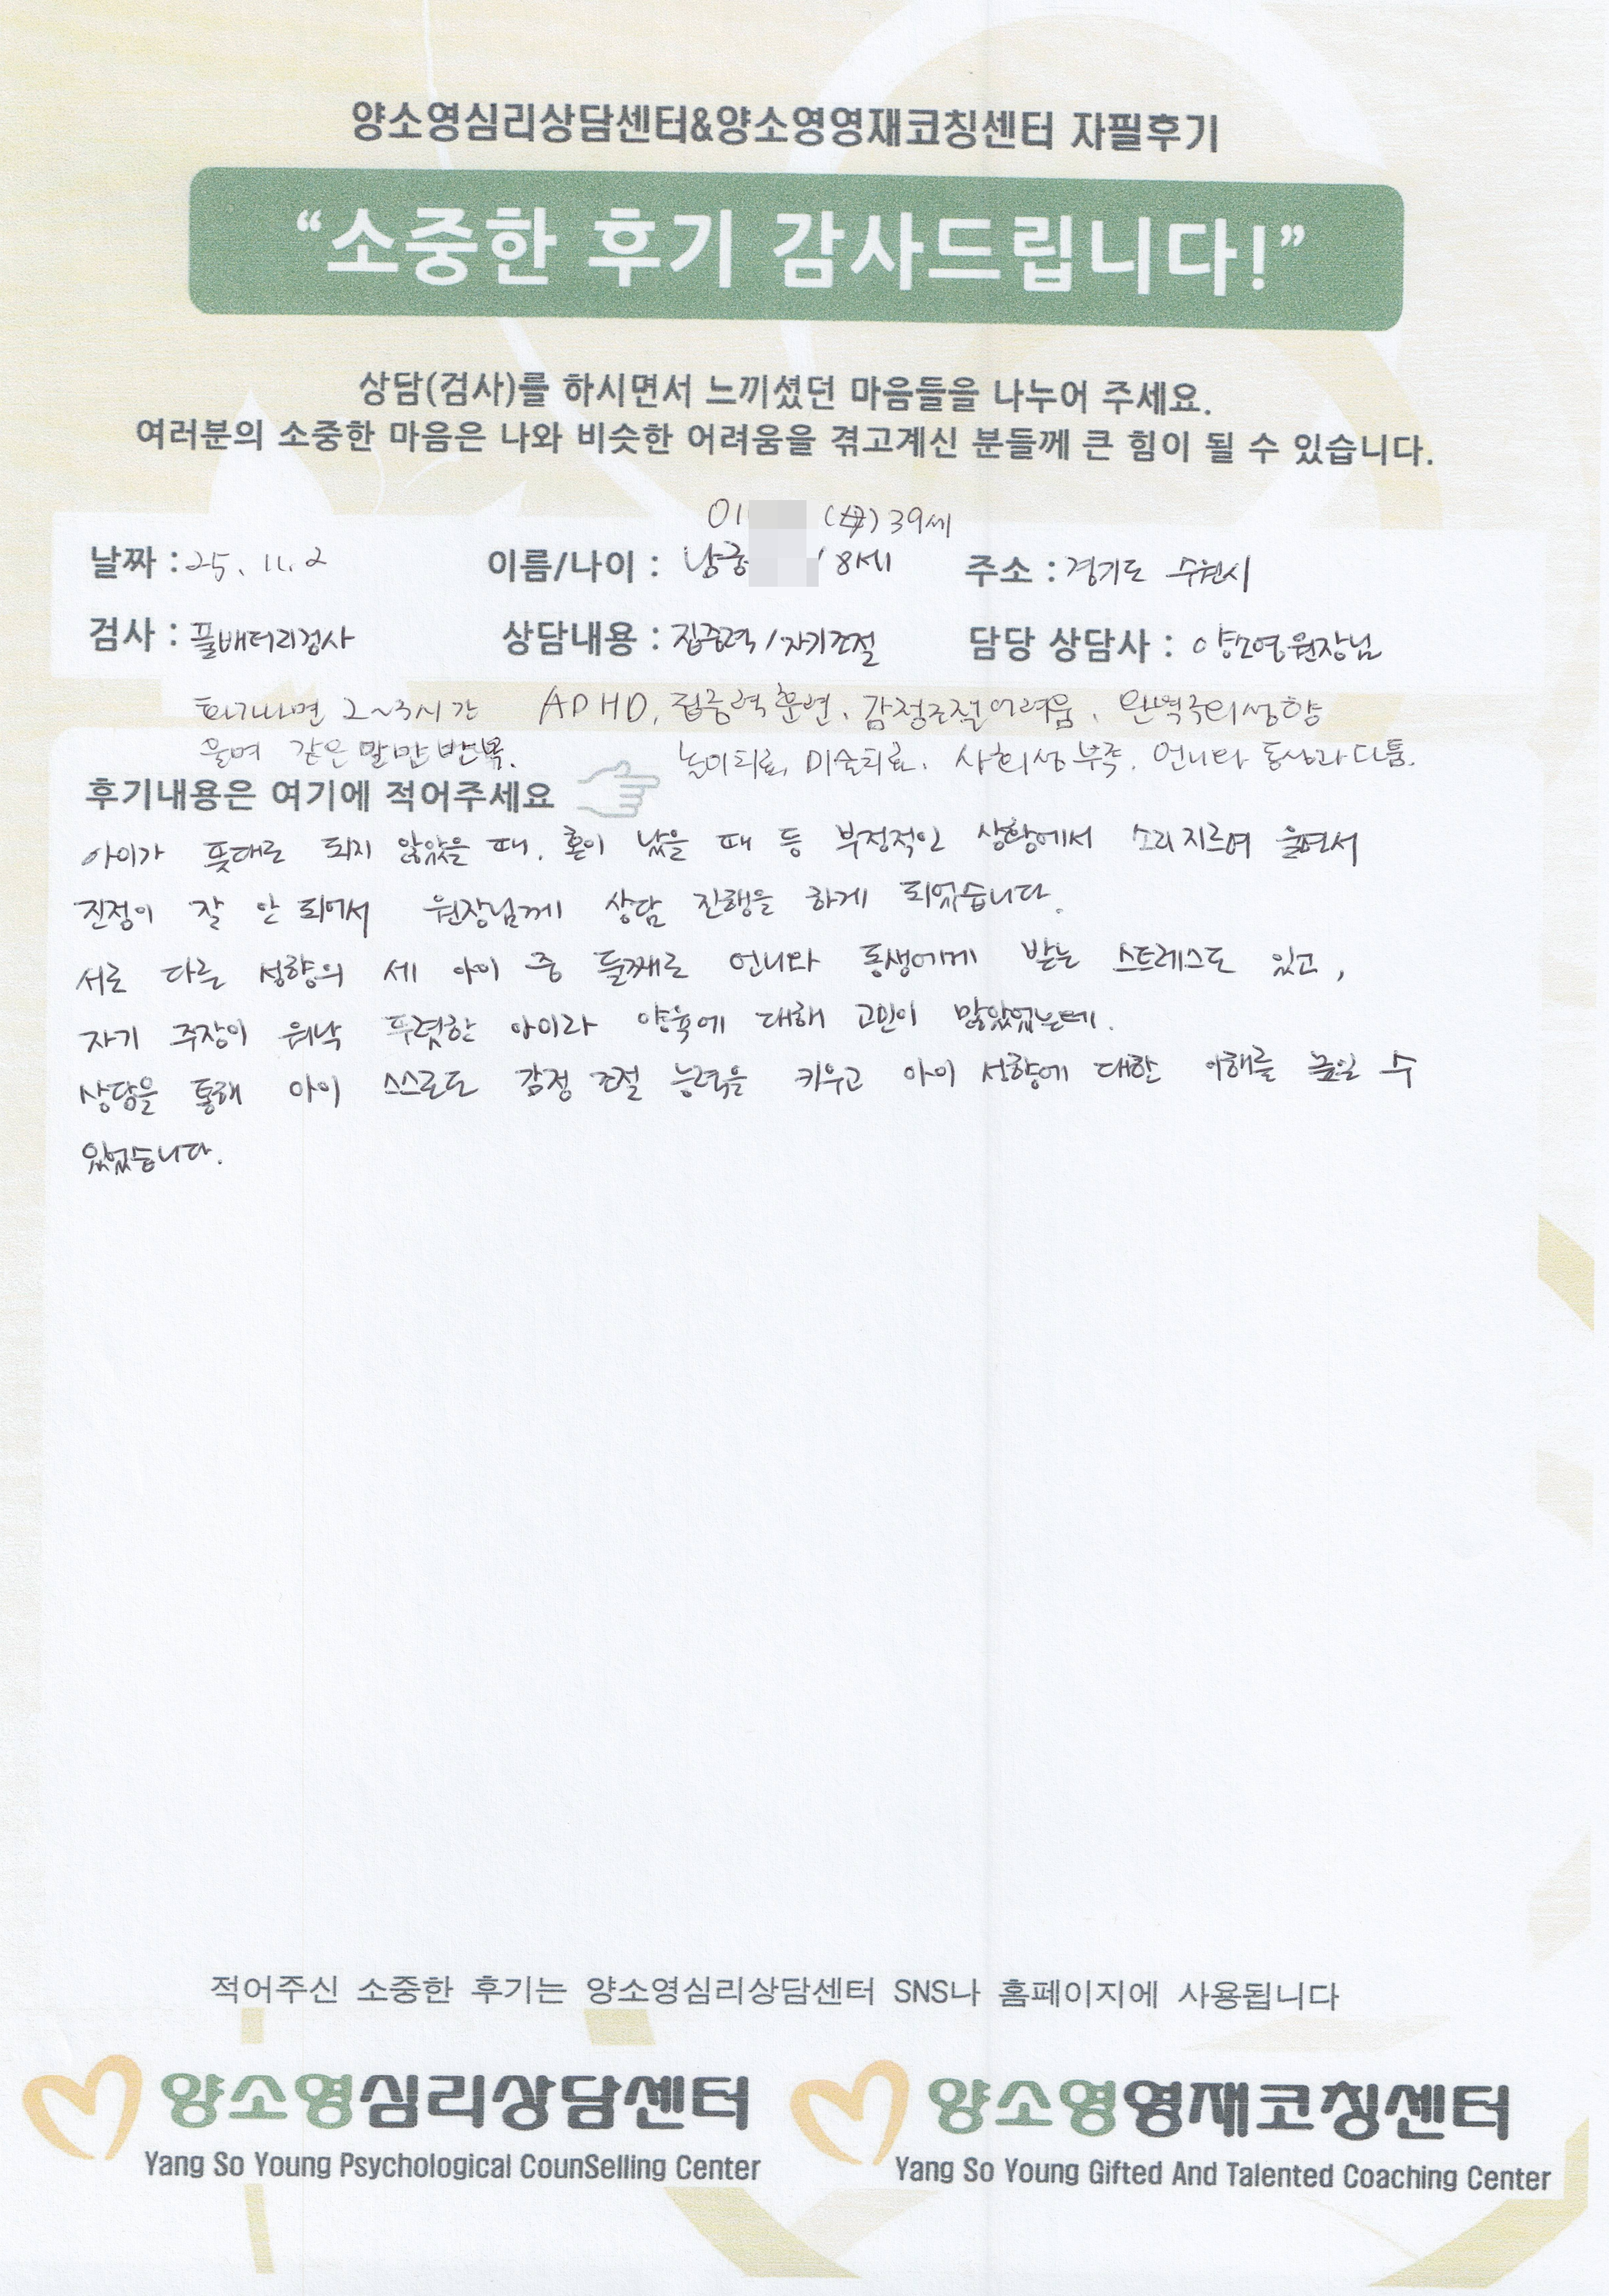 양소영심리상담센터&양소영영재코칭센터 자필후기
“소중한 후기 감사드립니다!”
상담(검사)를 하시면서 느끼셨던 마음들을 나누어 주세요.
여러분의 소중한 마음은 나와 비슷한 어려움을 겪고계신 분들께 큰 힘이 될 수 있습니다.
(母) 39세
날짜 : 25. 11. 2 이름/나이 : / 8세 주소 : 경기도 수원시
검사 : 풀배터리검사 상담내용 : 집중력/자기조절 담당 상담사 : 양소영원장님
화가나면 2~3시간 ADHD, 집중력훈련, 감정조절어려움, 완벽주의성향
울며 같은 말만 반복. 놀이치료, 미술치료, 사회성부족, 언니와 동생과 다툼.
후기내용은 여기에 적어주세요
아이가 뜻대로 되지 않았을 때, 혼이 났을 때 등 부정적인 상황에서 소리지르며 울면서
진정이 잘 안 되어서 원장님께 상담 진행을 하게 되었습니다.
서로 다른 성향의 세 아이 중 둘째로 언니와 동생에게 받는 스트레스도 있고,
자기 주장이 워낙 뚜렷한 아이라 양육에 대해 고민이 많았었는데.
상담을 통해 아이 스스로도 감정 조절 능력을 키우고 아이 성향에 대한 이해를 높일 수
있었습니다.
적어주신 소중한 후기는 양소영심리상담센터 SNS나 홈페이지에 사용됩니다
양소영심리상담센터 양소영영재코칭센터
Yang So Young Psychological CounSelling Center Yang So Young Gifted And Talented Coaching Center